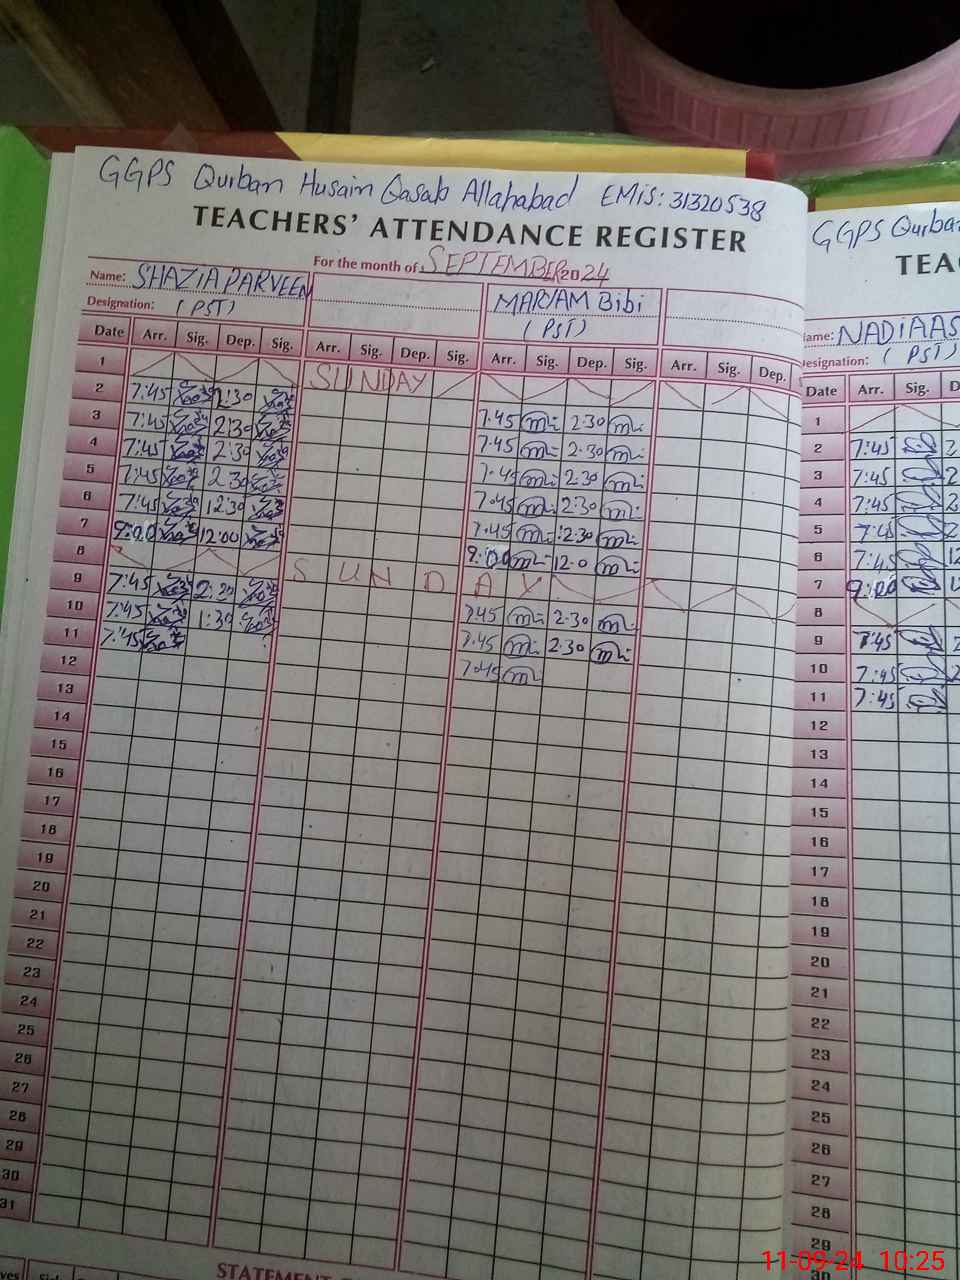 GGPS Qurban Husain Qasab Allahabad EMis: 31320538
TEACHERS' ATTENDANCE REGISTER
For the month of SEPTEMBER 2024
Name: SHAZIA PARVEEN
MARYAM Bibi
Designation: (PST)
(PST)
Date Arr. Sig. Dep. Sig. Arr. Sig. Dep. Sig. Arr. Sig. Dep. Sig. Arr. Sig. Dep.
1 SUNDAY
2 7:45 2:30
3 7:45 2:30 7.45 2.30
4 7:45 2:30 7.45 2.30
5 7:45 2.30 7.45 2.30
6 7:45 12:30 7.45 2:30
7 9:00 12:00 7.45 :2.30
8 SUNDAY 9:00 12.0
9 7:45 2:30
10 7:45 1:30 7.45 2.30
11 7:45 7.45 2.30
12 7.45
13
14
15
16
17
18
19
20
21
22
23
24
25
26
27
28
29
30
31
STATEMENT
GGPS Qurba
TEA
ame: NADIA AS
esignation: (PST)
Date Arr. Sig. D
1
2 7:45 2
3 7:45 2
4 7:45 2
5 7:45 2
6 7:45 12
7 9:00 1
8
9 7:45 2
10 7:45 2
11 7:45
12
13
14
15
16
17
18
19
20
21
22
23
24
25
26
27
28
29
30
11-09-24 10:25